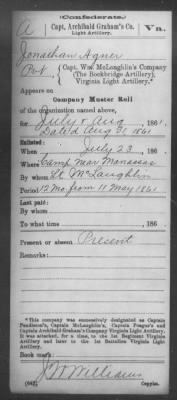 (Confederate.)
A Capt. Archibald Graham's Co. Va.
Light Artillery.
Jonathan Agner
Pvt, Capt. Wm. McLaughlin's Company
(The Rockbridge Artillery),
Virginia Light Artillery.*
Appears on
Company Muster Roll
of the organization named above,
for July & Aug, 1861.
Dated Aug 31 1861
Enlisted:
When July 23, 186 .
Where Camp near Manassas
By whom Lt. McLaughlin
Period 12 mo. from 11 May 1861
Last paid:
By whom
To what time , 186 .
Present or absent Present
Remarks:
*This company was successively designated as Captain
Pendleton's, Captain McLaughlin's, Captain Poague's and
Captain Archibald Graham's Company Virginia Light Artillery.
It was attached, for a time, to the 1st Regiment Virginia
Artillery and later to the 1st Battalion Virginia Light
Artillery.
Book mark:
J W Williams
(642) Copyist.